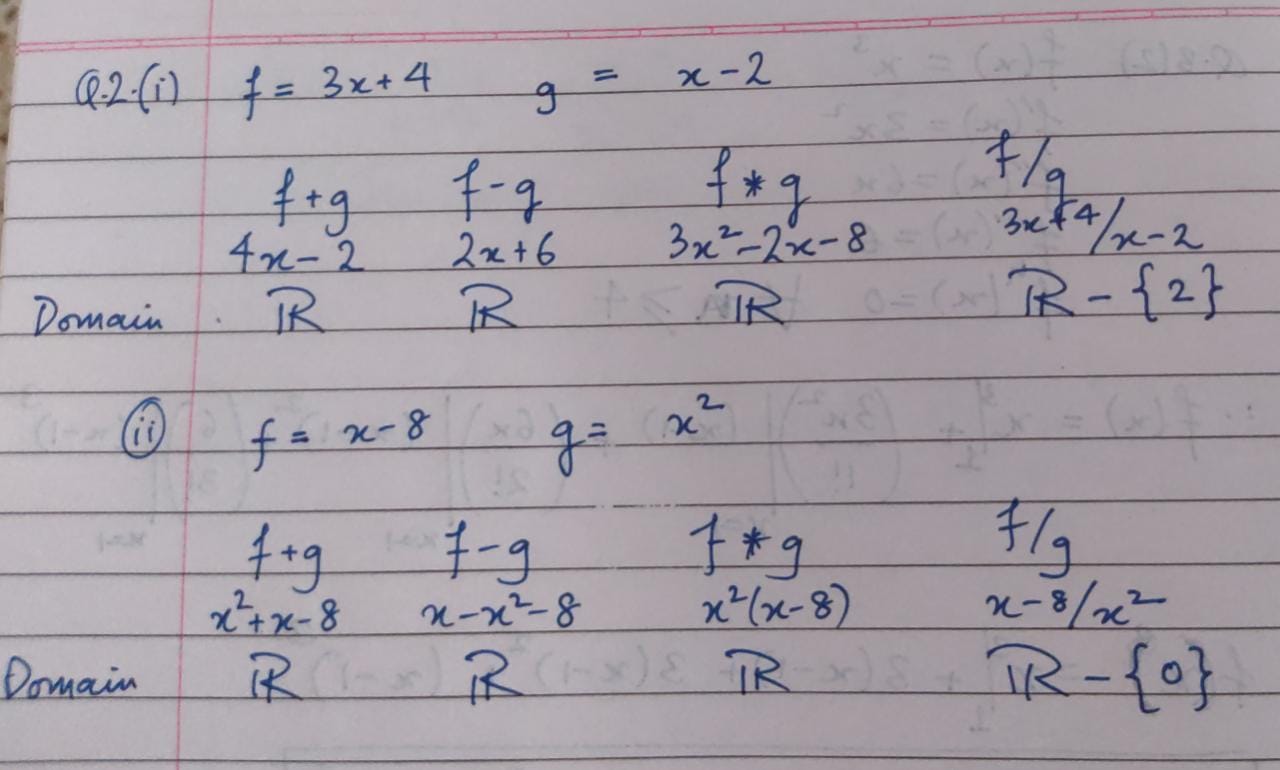 Q.2.(i) f = 3x+4 g = x-2
f+g f-g f*g f/g
4x-2 2x+6 3x²-2x-8 3x+4/x-2
Domain ℝ ℝ ℝ ℝ - {2}
(ii) f = x-8 g = x²
f+g f-g f*g f/g
x²+x-8 x-x²-8 x²(x-8) x-8/x²
Domain ℝ ℝ ℝ ℝ - {0}